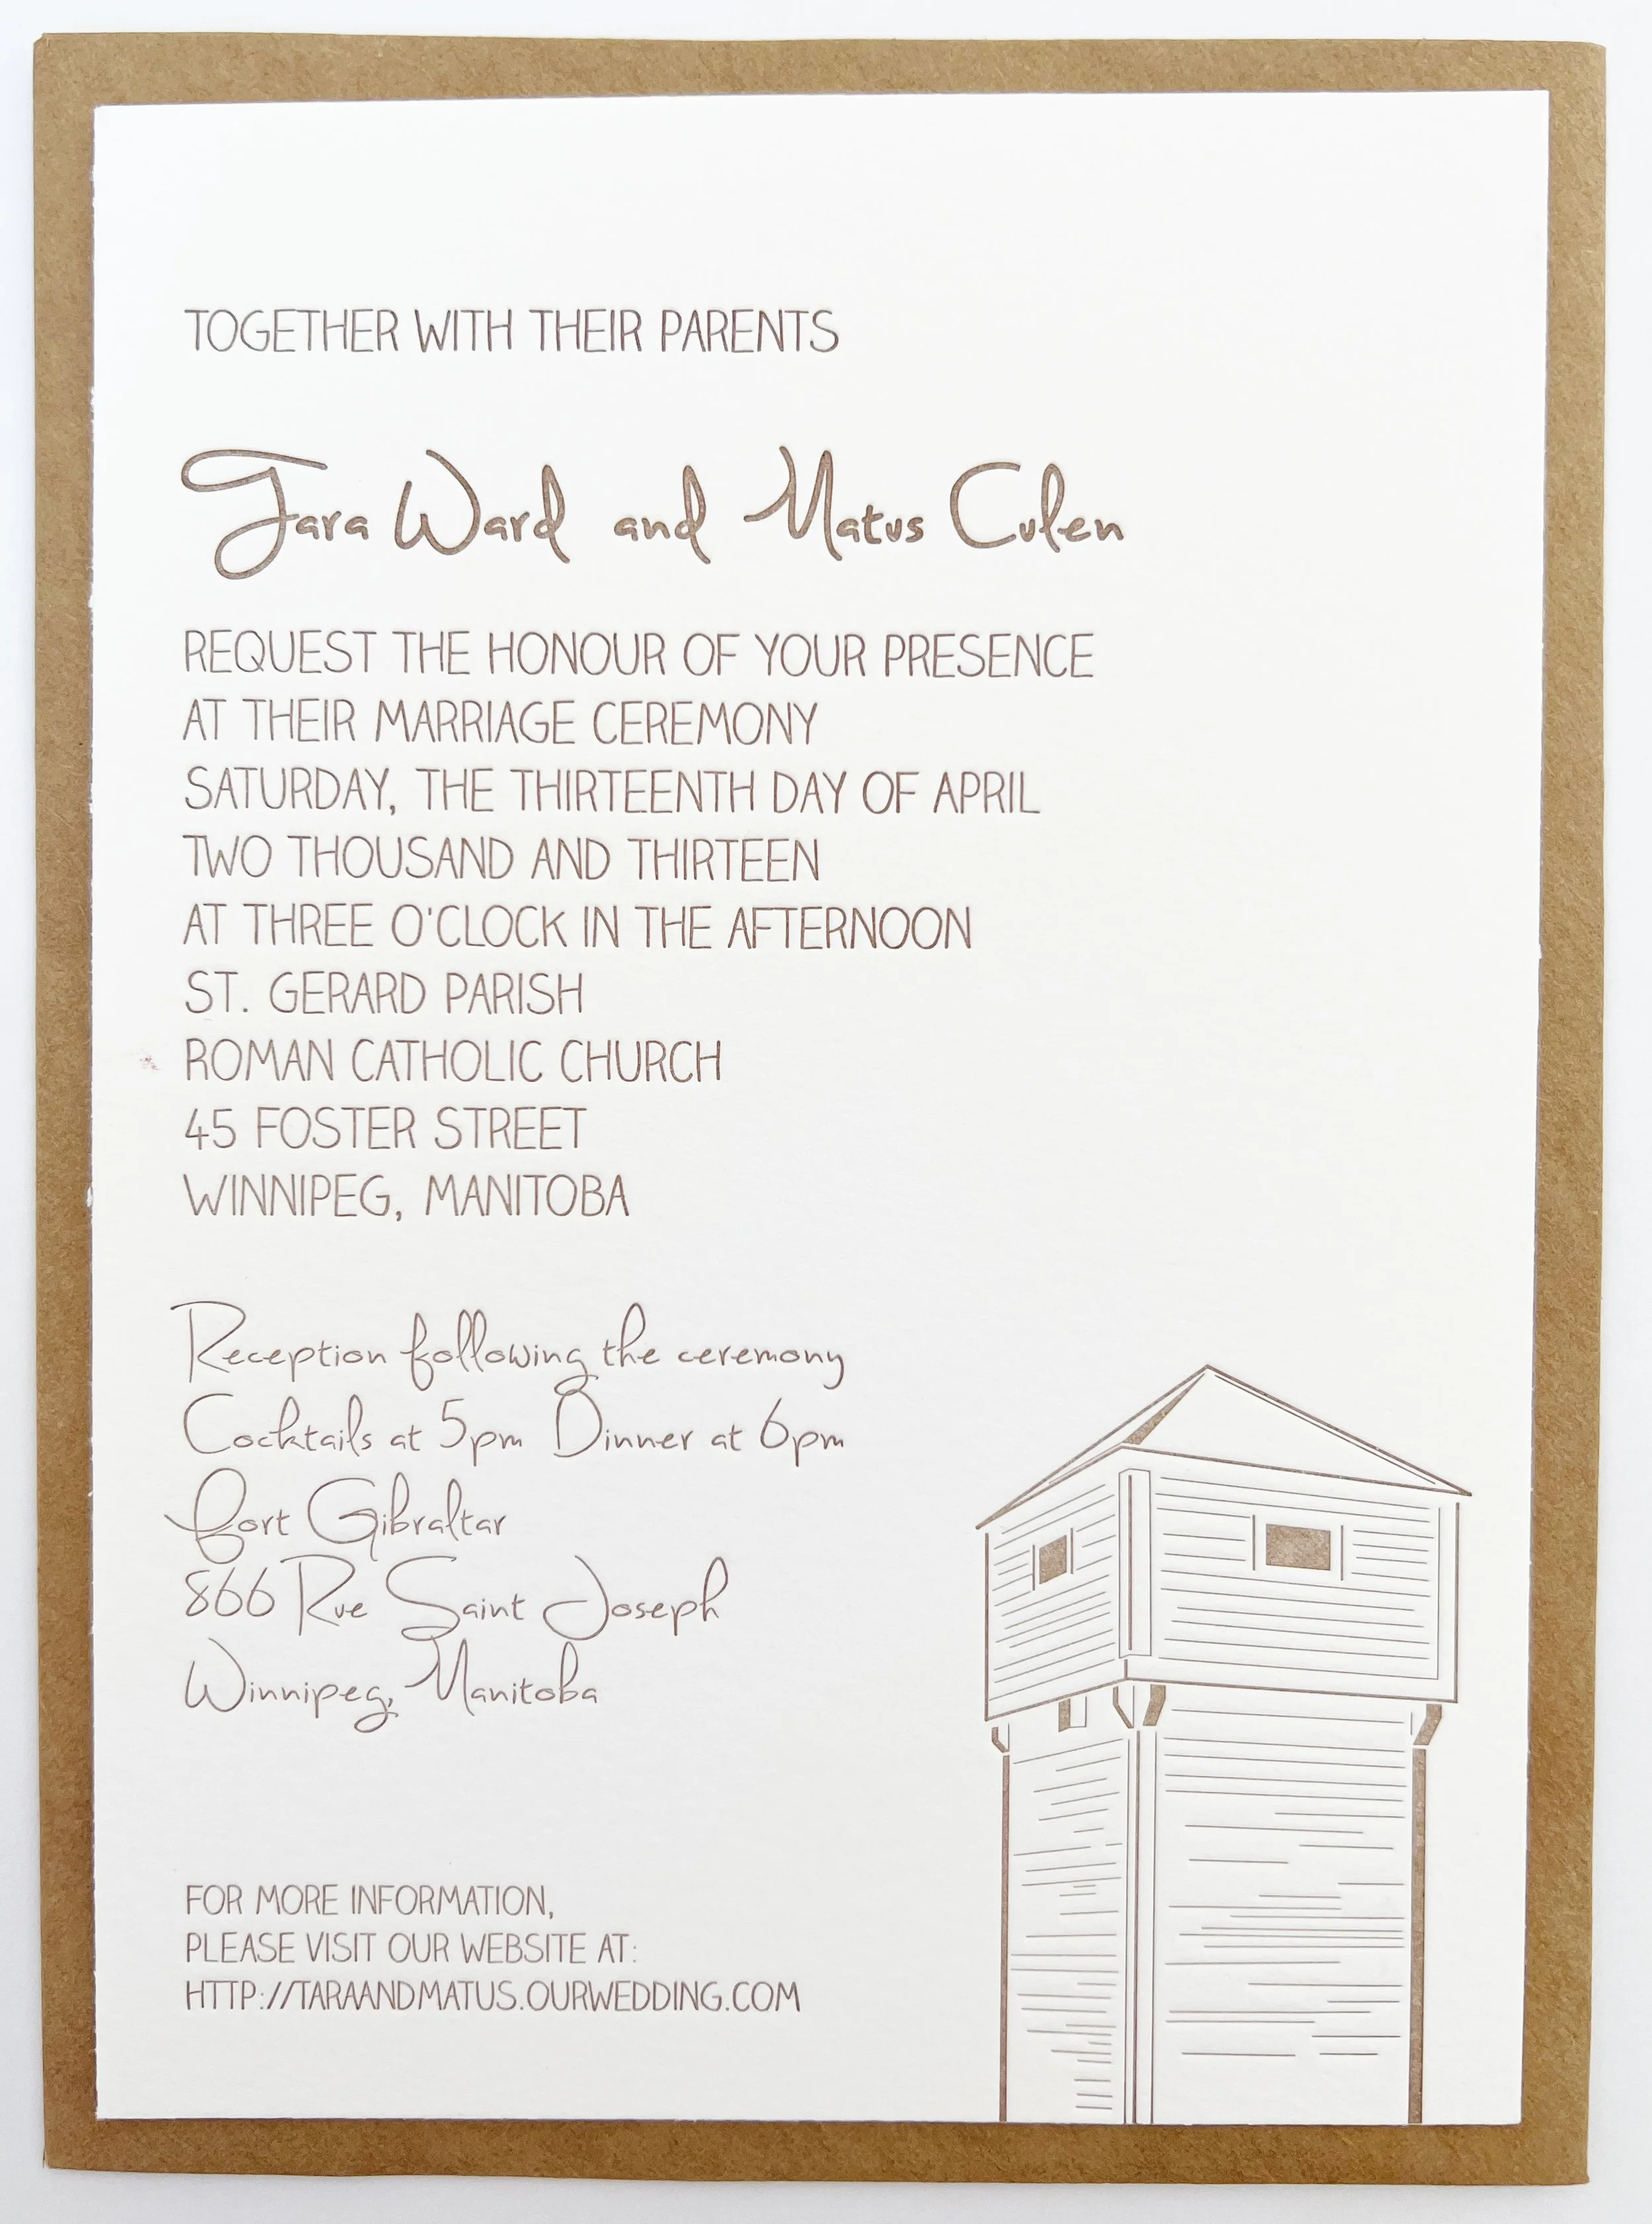 TOGETHER WITH THEIR PARENTS
Tara Ward and Matus Culen
REQUEST THE HONOUR OF YOUR PRESENCE
AT THEIR MARRIAGE CEREMONY
SATURDAY, THE THIRTEENTH DAY OF APRIL
TWO THOUSAND AND THIRTEEN
AT THREE O'CLOCK IN THE AFTERNOON
ST. GERARD PARISH
ROMAN CATHOLIC CHURCH
45 FOSTER STREET
WINNIPEG, MANITOBA
Reception following the ceremony
Cocktails at 5pm Dinner at 6pm
Fort Gibraltar
866 Rue Saint Joseph
Winnipeg, Manitoba
FOR MORE INFORMATION,
PLEASE VISIT OUR WEBSITE AT:
HTTP://TARAANDMATUS.OURWEDDING.COM